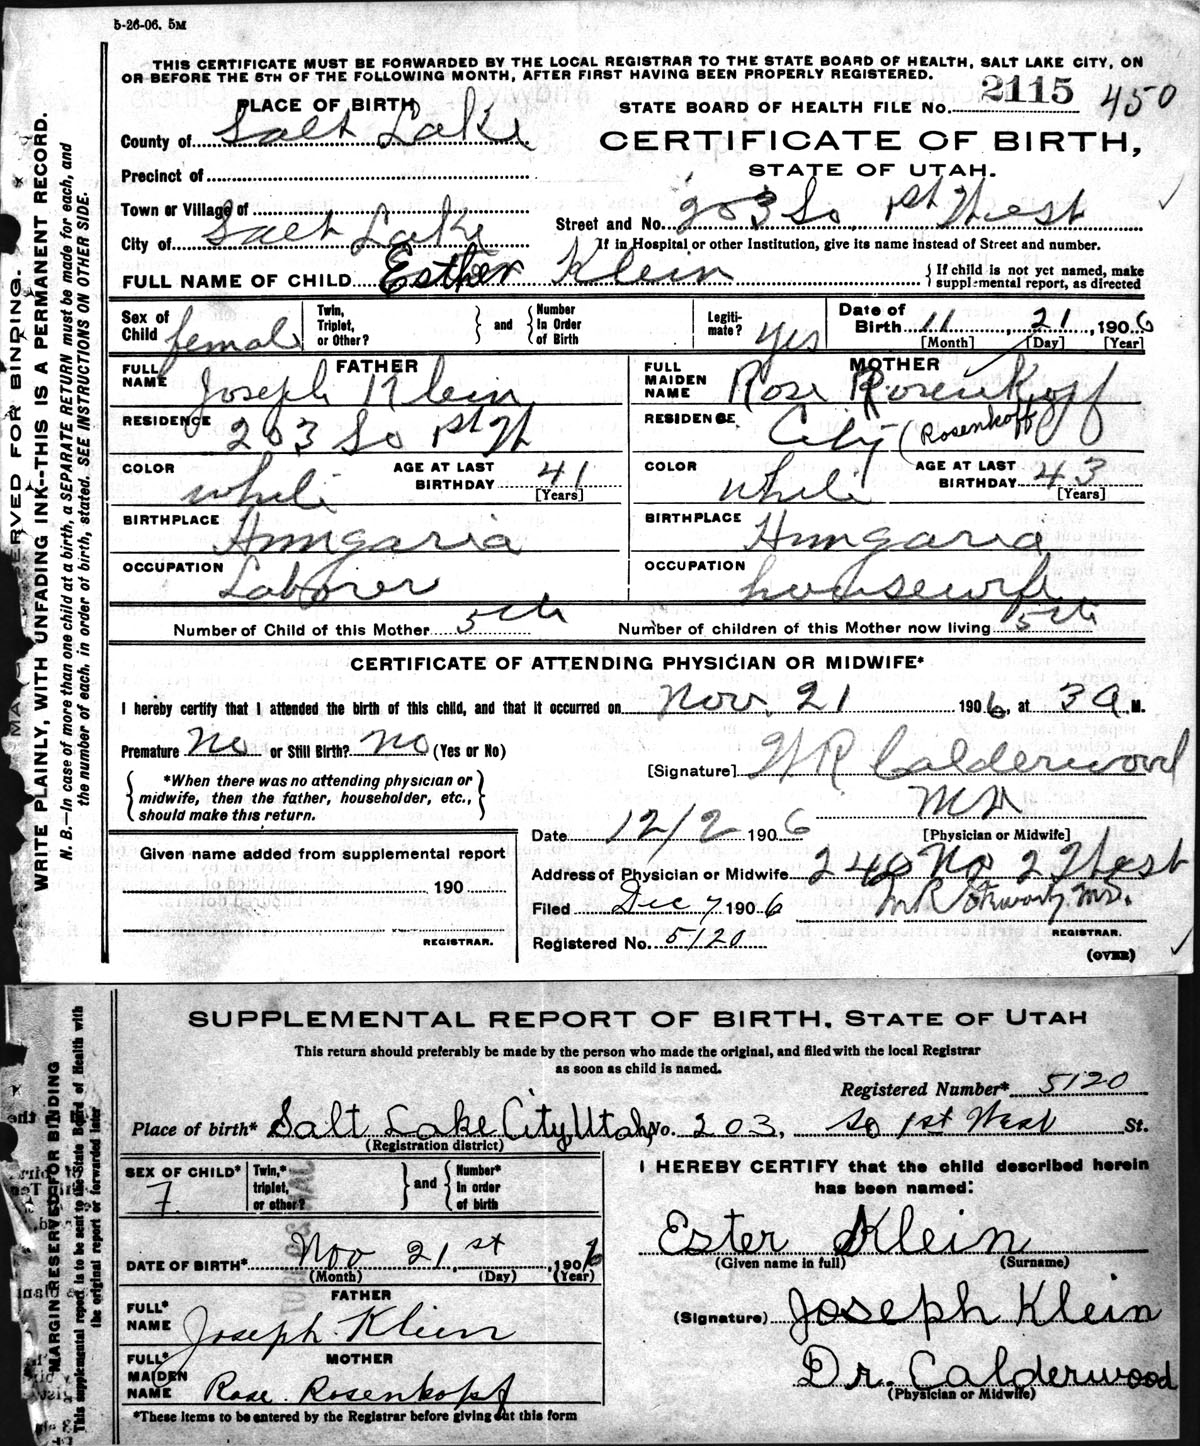 5-26-06. 5M
THIS CERTIFICATE MUST BE FORWARDED BY THE LOCAL REGISTRAR TO THE STATE BOARD OF HEALTH, SALT LAKE CITY, ON
OR BEFORE THE 5TH OF THE FOLLOWING MONTH, AFTER FIRST HAVING BEEN PROPERLY REGISTERED.
PLACE OF BIRTH
STATE BOARD OF HEALTH FILE No. 2115 450
County of Salt Lake
CERTIFICATE OF BIRTH,
STATE OF UTAH.
Precinct of
Town or Village of
Street and No. 203 So 1st West
City of Salt Lake
If in Hospital or other Institution, give its name instead of Street and number.
FULL NAME OF CHILD Esther Klein
If child is not yet named, make
supplemental report, as directed
Sex of Child female
Twin, Triplet, or Other? and Number In Order of Birth
Legiti-mate? yes
Date of Birth 11 21, 1906
[Month] [Day] [Year]
FATHER
FULL NAME Joseph Klein
RESIDENCE 203 So 1st W
COLOR white AGE AT LAST BIRTHDAY 41 [Years]
BIRTHPLACE Hungaria
OCCUPATION Laborer
MOTHER
FULL MAIDEN NAME Rose Rosenkoff
RESIDENCE City (Rosenkoff
COLOR white AGE AT LAST BIRTHDAY 43 [Years]
BIRTHPLACE Hungaria
OCCUPATION housewife
Number of Child of this Mother 5th Number of children of this Mother now living 5th
CERTIFICATE OF ATTENDING PHYSICIAN OR MIDWIFE*
I hereby certify that I attended the birth of this child, and that it occurred on Nov. 21 1906, at 3 A M.
Premature no or Still Birth? no (Yes or No)
[Signature] W R Calderwood
MD
[Physician or Midwife]
*When there was no attending physician or
midwife, then the father, householder, etc.,
should make this return.
Date 12/2 1906
Address of Physician or Midwife 240 No 2 West
Filed Dec 7 1906
M.D.
REGISTRAR.
Registered No. 5120
(OVER)
Given name added from supplemental report
190
REGISTRAR.
MA RVED FOR BINDING.
WRITE PLAINLY, WITH UNFADING INK--THIS IS A PERMANENT RECORD.
N. B.—In case of more than one child at a birth, a SEPARATE RETURN must be made for each, and
the number of each, in order of birth, stated. SEE INSTRUCTIONS ON OTHER SIDE.
SUPPLEMENTAL REPORT OF BIRTH, STATE OF UTAH
This return should preferably be made by the person who made the original, and filed with the local Registrar
as soon as child is named.
Registered Number* 5120
Place of birth* Salt Lake City, Utah, No. 203, So 1st West St.
(Registration district)
SEX OF CHILD* F.
Twin,* triplet, or other? and Number* In order of birth
DATE OF BIRTH* Nov 21st, 1906
(Month) (Day) (Year)
FATHER
FULL* NAME Joseph Klein
MOTHER
FULL* MAIDEN NAME Rose Rosenkopf
*These items to be entered by the Registrar before giving out this form
I HEREBY CERTIFY that the child described herein
has been named:
Ester Klein
(Given name in full) (Surname)
(Signature) Joseph Klein
Dr. Calderwood
(Physician or Midwife)
MARGIN RESERVED FOR BINDING
This supplemental report is to be sent to the State Board of Health with
the original report or forwarded later